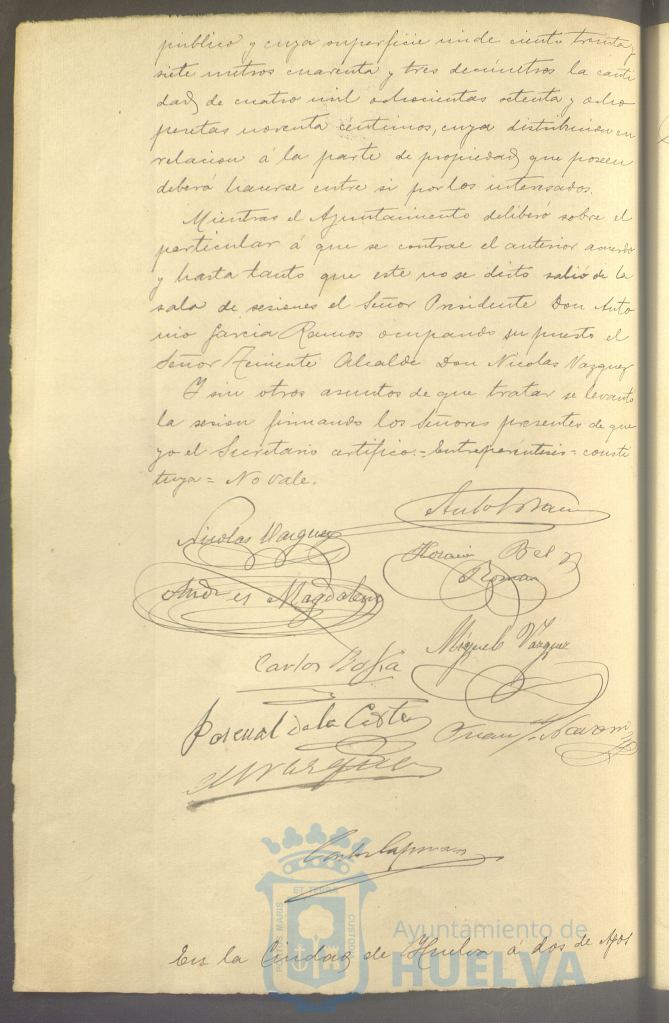 público y cuya superficie mide ciento treinta y
siete metros cuarenta y tres decímetros la canti
dad de cuatro mil ochocientas setenta y ocho
pesetas noventa céntimos, cuya distribucion en
relacion á la parte de propiedad que poseen
deberá hacerse entre si por los interesados.
Mientras el Ayuntamiento deliberó sobre el
particular á que se contrae el anterior acuerdo
y hasta tanto que este no se dictó salió de la
sala de sesiones el Señor Presidente Don Anto
nio Garcia Ramos ocupando su puesto el
Señor Teniente Alcalde Don Nicolas Vazquez
Y sin otros asuntos de que tratar se levantó
la sesion firmando los Señores presentes de que
yo el Secretario certifico.=Entreparéntesis=consti
tuya=No vale.
Nicolas Vazquez
Horacio Bel y
Roman
Andres Magdaleno
Miguel Vázquez
Carlos
Pascual de la Corte
Juan J. Navarro
En la Ciudad de Huelva á dos de Agos
PORTUS MARIS ET TERRAE CUSTODIA
Ayuntamiento de
HUELVA